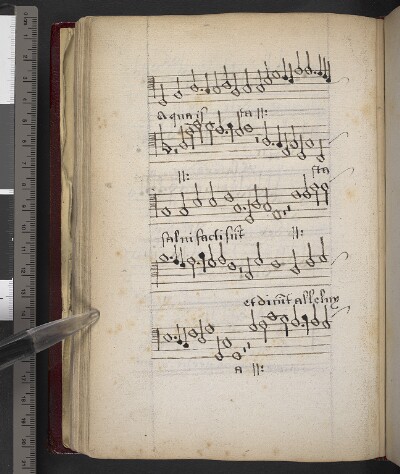 aqua ista ||:
||: sta
salvi facti sūt ||:
et dicūt alleluy
a ||: